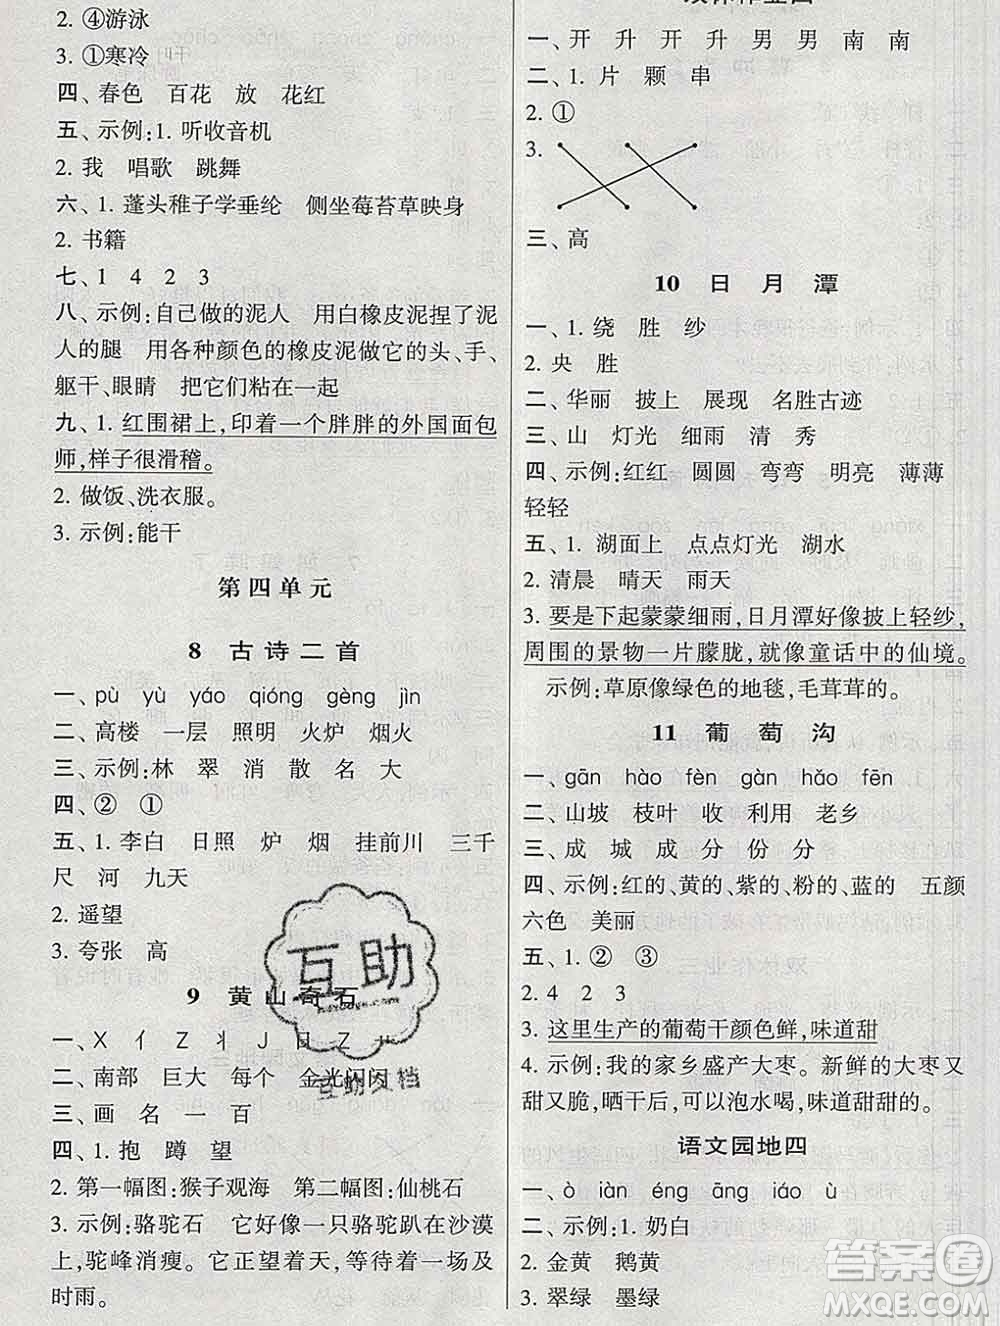 2. ④游泳
3. ①寒冷
四、春色 百花 放 花红
五、示例:1. 听收音机
2. 我 唱歌 跳舞
六、1. 蓬头稚子学垂纶 侧坐莓苔草映身
2. 书籍
七、1 4 2 3
八、示例:自己做的泥人 用白橡皮泥捏了泥
人的腿 用各种颜色的橡皮泥做它的头、手、
躯干、眼睛 把它们粘在一起
九、1. 红围裙上,印着一个胖胖的外国面包
师,样子很滑稽。
2. 做饭、洗衣服。
3. 示例:能干
第四单元
8 古诗二首
一、pù yù yáo qióng gèng jìn
二、高楼 一层 照明 火炉 烟火
三、示例:林 翠 消 散 名 大
四、② ①
五、1. 李白 日照 炉 烟 挂前川 三千
尺 河 九天
2. 遥望
3. 夸张 高
9 黄山奇石
一、X 亻 Z 丬 J 日 Z 火
二、南部 巨大 每个 金光闪闪
三、画 名 一 百
四、1. 抱 蹲 望
2. 第一幅图:猴子观海 第二幅图:仙桃石
3. 示例:骆驼石 它好像一只骆驼趴在沙漠
上,驼峰消瘦。它正望着天,等待着一场及
时雨。
一、开 升 开 升 男 男 南 南
二、1. 片 颗 串
2. ①
3.
三、高
10 日月潭
一、1. 绕 胜 纱
2. 央 胜
二、华丽 披上 展现 名胜古迹
三、山 灯光 细雨 清 秀
四、示例:红红 圆圆 弯弯 明亮 薄薄
轻轻
五、1. 湖面上 点点灯光 湖水
2. 清晨 晴天 雨天
3. 要是下起蒙蒙细雨,日月潭好像披上轻纱,
周围的景物一片朦胧,就像童话中的仙境。
示例:草原像绿色的地毯,毛茸茸的。
11 葡萄沟
一、gān hào fèn gàn hǎo fēn
二、山坡 枝叶 收 利用 老乡
三、成 城 成 分 份 分
四、示例:红的、黄的、紫的、粉的、蓝的 五颜
六色 美丽
五、1. ② ③
2. 4 2 3
3. 这里生产的葡萄干颜色鲜,味道甜
4. 示例:我的家乡盛产大枣。新鲜的大枣又
甜又脆,晒干后,可以泡水喝,味道甜甜的。
语文园地四
一、ò iàn éng āng iáo ù
二、示例:1. 奶白
2. 金黄 鹅黄
3. 翠绿 墨绿
互助
互助文档
答案圈
MXQE.COM